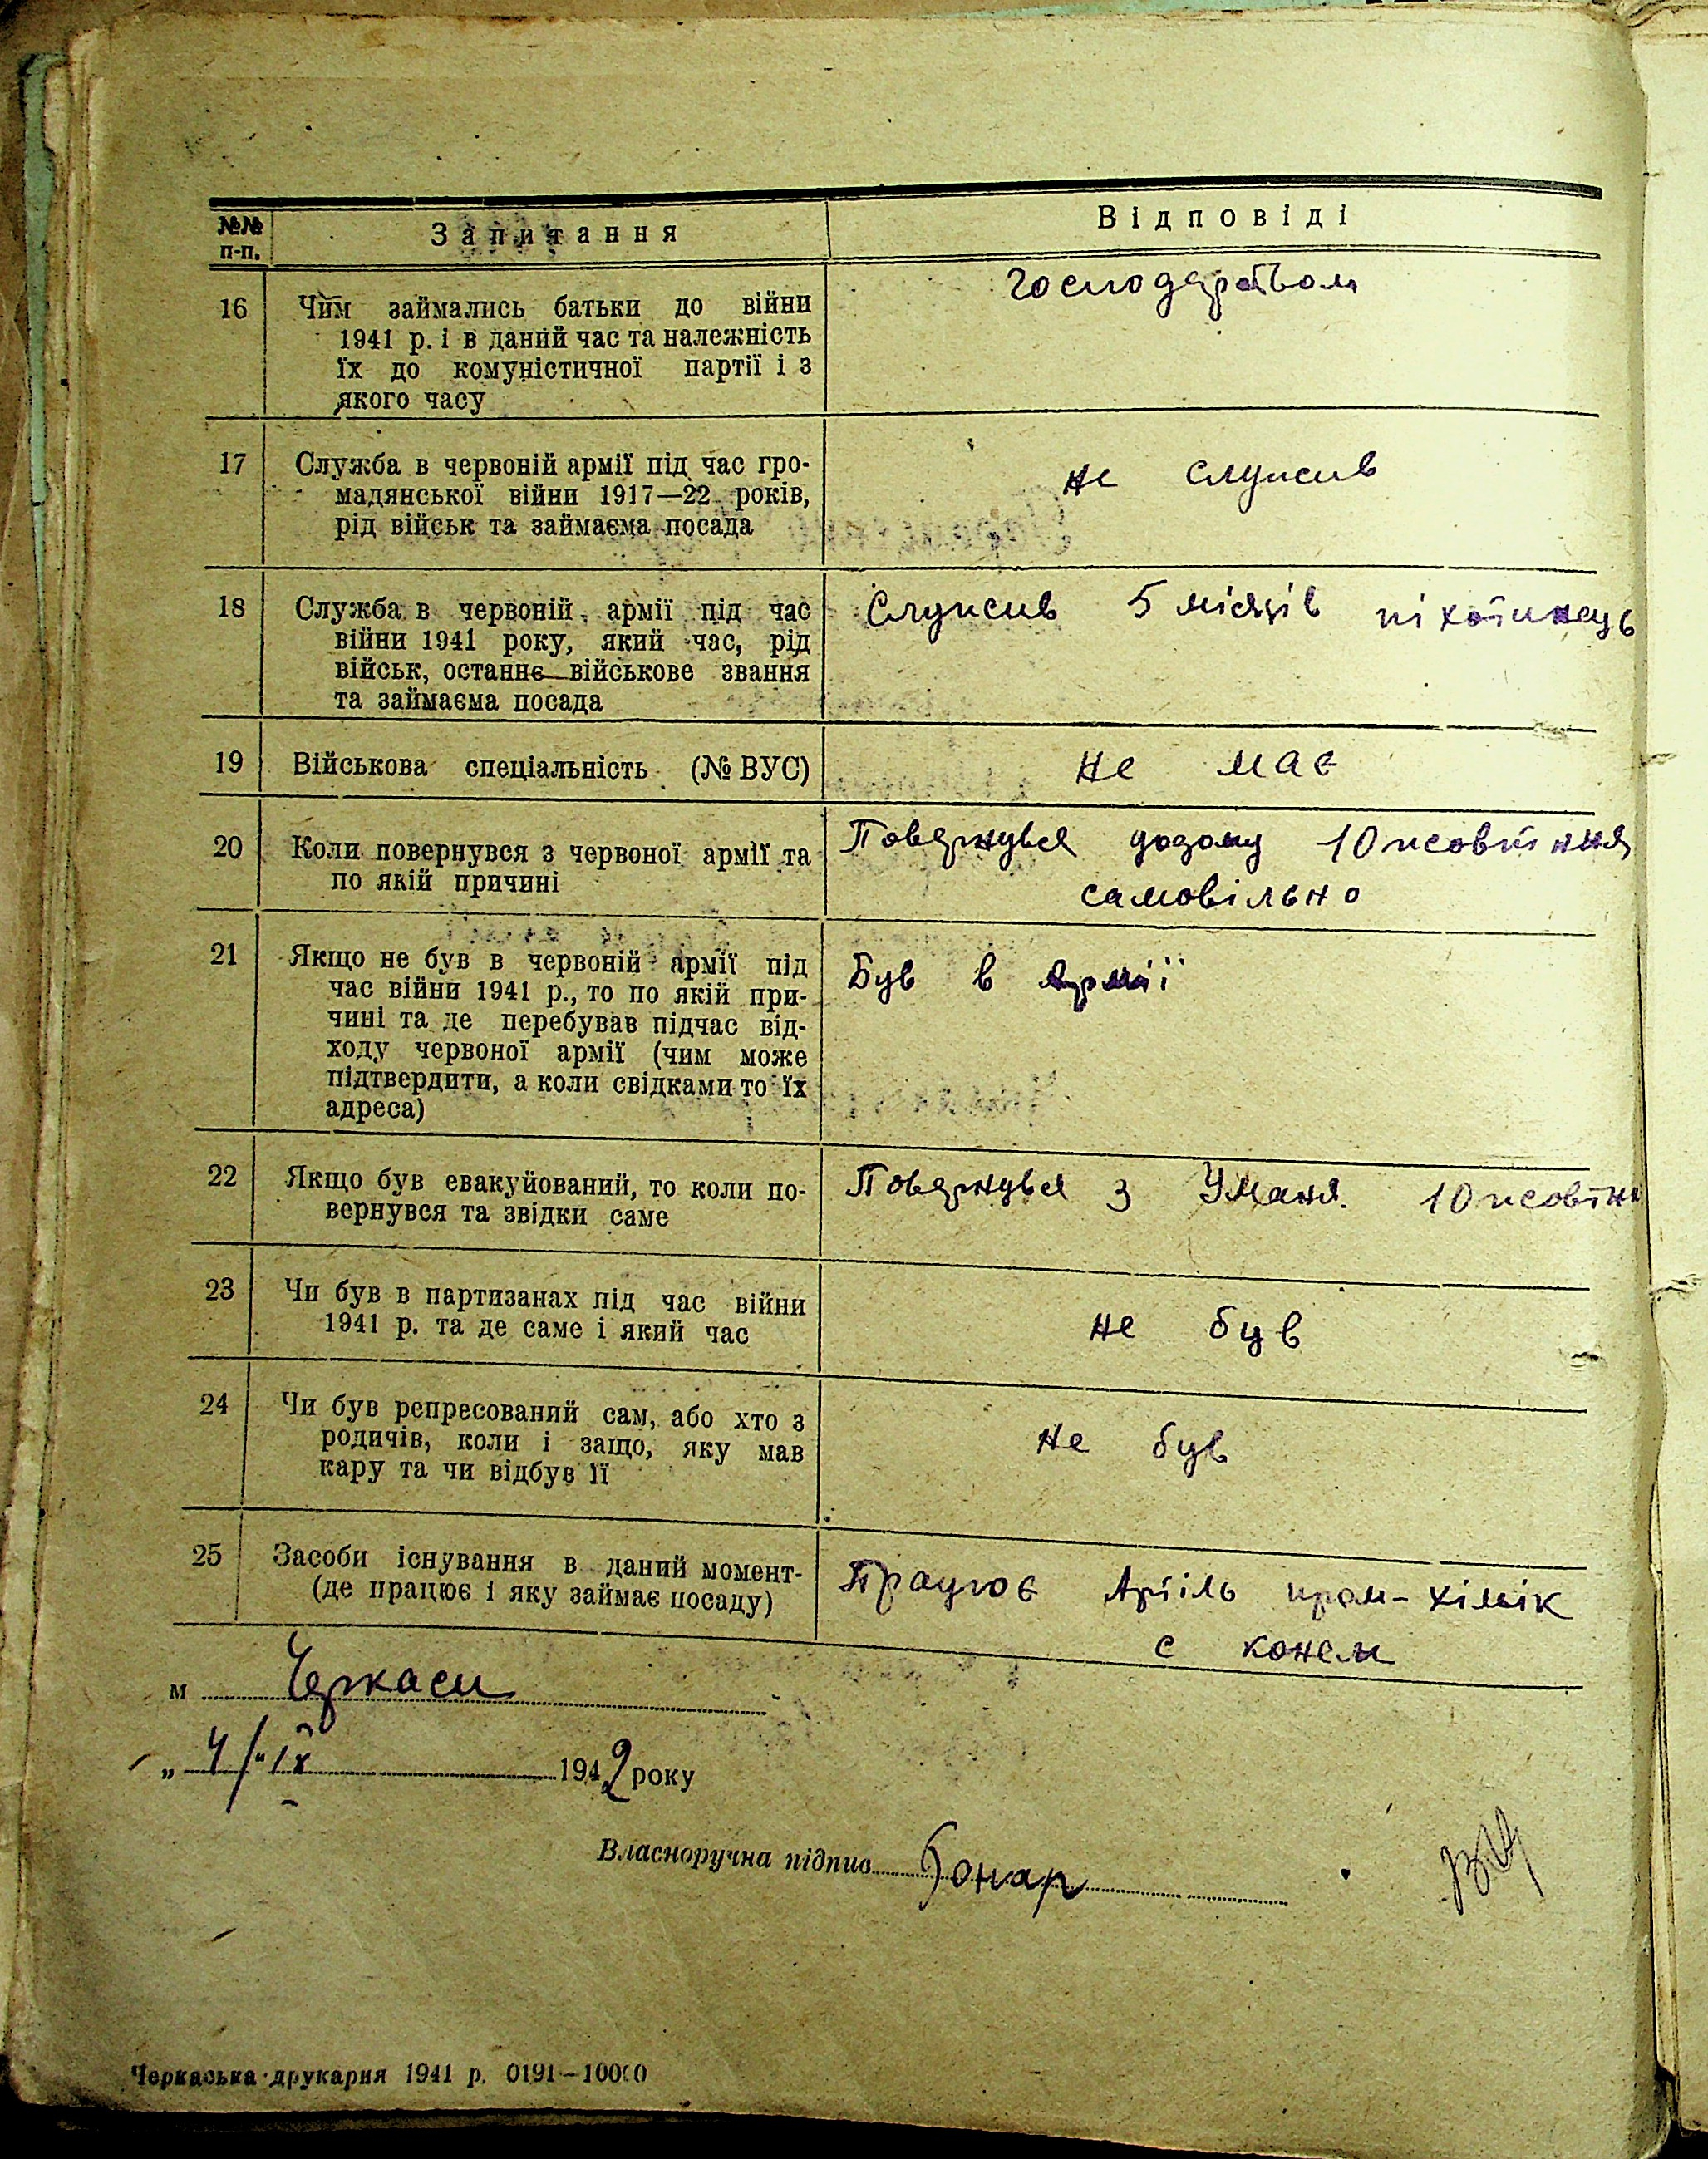 №№ п-п. Запитання Відповіді
16 Чим займались батьки до війни господарством
1941 р. і в даний час та належність
їх до комуністичної партії і з
якого часу
17 Служба в червоній армії під час гро-
мадянської війни 1917—22 років, не служив
рід військ та займаєма посада
18 Служба в червоній армії під час Служив 5 місяців піхотинець
війни 1941 року, який час, рід
військ, останнє військове звання
та займаєма посада
19 Військова спеціальність (№ ВУС) не має
20 Коли повернувся з червоної армії та Повернувся додому 10 жовтння
по якій причині самовільно
21 Якщо не був в червоній армії під Був в Армії
час війни 1941 р., то по якій при-
чині та де перебував підчас від-
ходу червоної армії (чим може
підтвердити, а коли свідками то їх
адреса)
22 Якщо був евакуйований, то коли по- Повернувся з Уманя. 10 жовтн
вернувся та звідки саме
23 Чи був в партизанах під час війни
1941 р. та де саме і який час не був
24 Чи був репресований сам, або хто з
родичів, коли і защо, яку мав не був
кару та чи відбув її
25 Засоби існування в даний момент- Працює Артіль пром-хімік
(де працює і яку займає посаду) с конем
м Черкаси
„ 4 “ IX 1942 року
Власноручна підпис Гонар
Черкаська друкарня 1941 р. 0191—10000